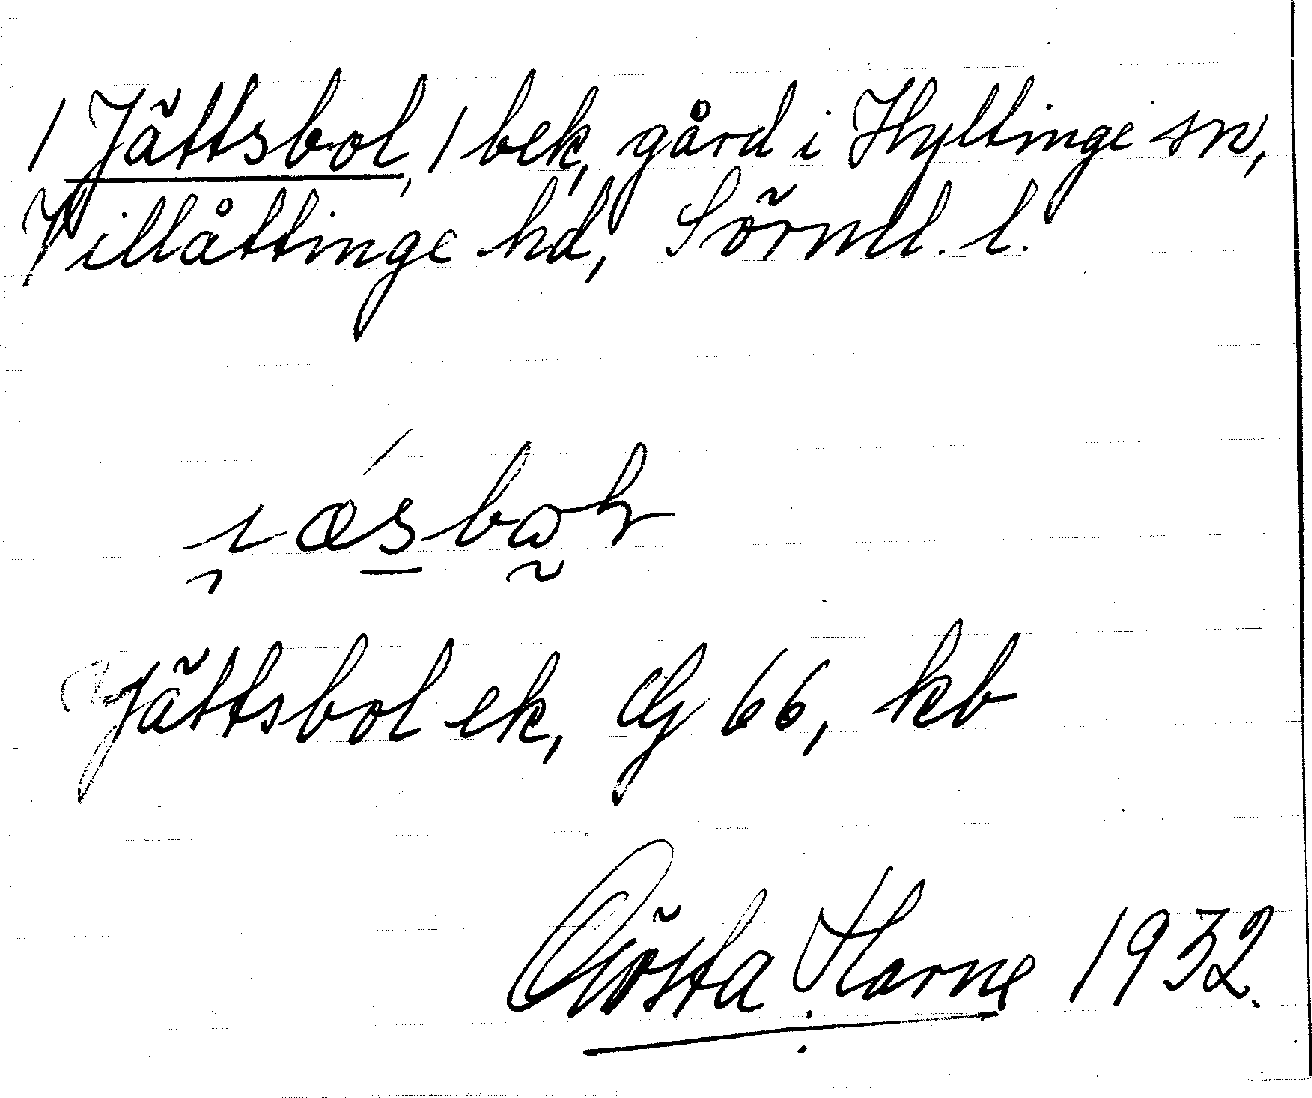 1 Jättsbol, 1 bek, gård i Hyltinge sn,
Villåttinge hd, Sörml. l.
Jättsbol ek, Gj 66, kb
Gösta Harne 1932.